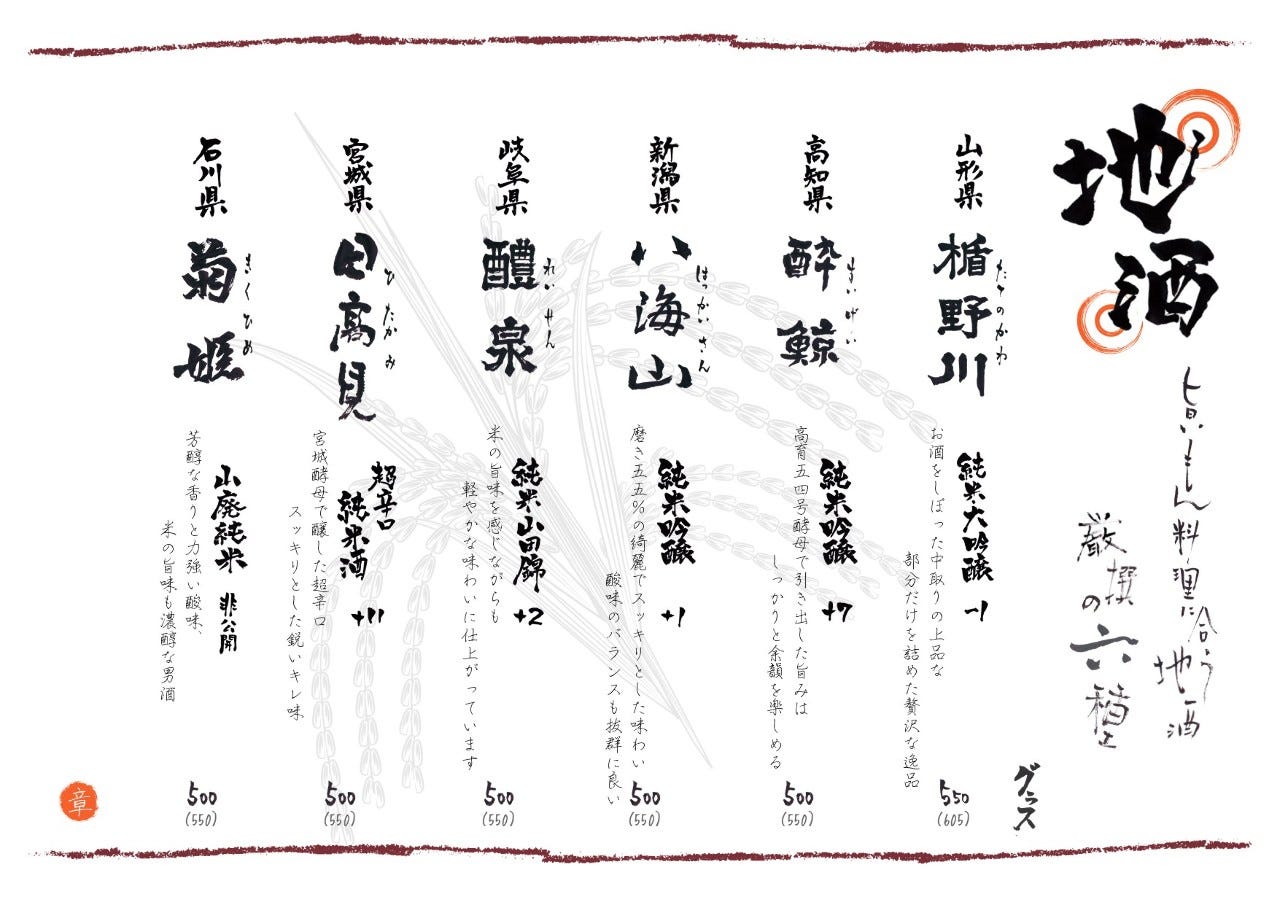 地酒
旨いもん料理に合う地酒
厳撰の六種
グラス
山形県
楯野川
たてのかわ
純米大吟醸 -1
お酒をしぼった中取りの上品な
部分だけを詰めた贅沢な逸品
550
(605)
高知県
酔鯨
すいげい
純米吟醸 +7
高育五四号酵母で引き出した旨みは
しっかりと余韻を楽しめる
500
(550)
新潟県
八海山
はっかいさん
純米吟醸 +1
磨き五五%の綺麗でスッキリとした味わい
酸味のバランスも抜群に良い
500
(550)
岐阜県
醴泉
れいせん
純米山田錦 +2
米の旨味を感じながらも
軽やかな味わいに仕上がっています
500
(550)
宮城県
日高見
ひたかみ
超辛口
純米酒 +11
宮城酵母で醸した超辛口
スッキリとした鋭いキレ味
500
(550)
石川県
菊姫
きくひめ
山廃純米 非公開
芳醇な香りと力強い酸味、
米の旨味も濃醇な男酒
500
(550)
章